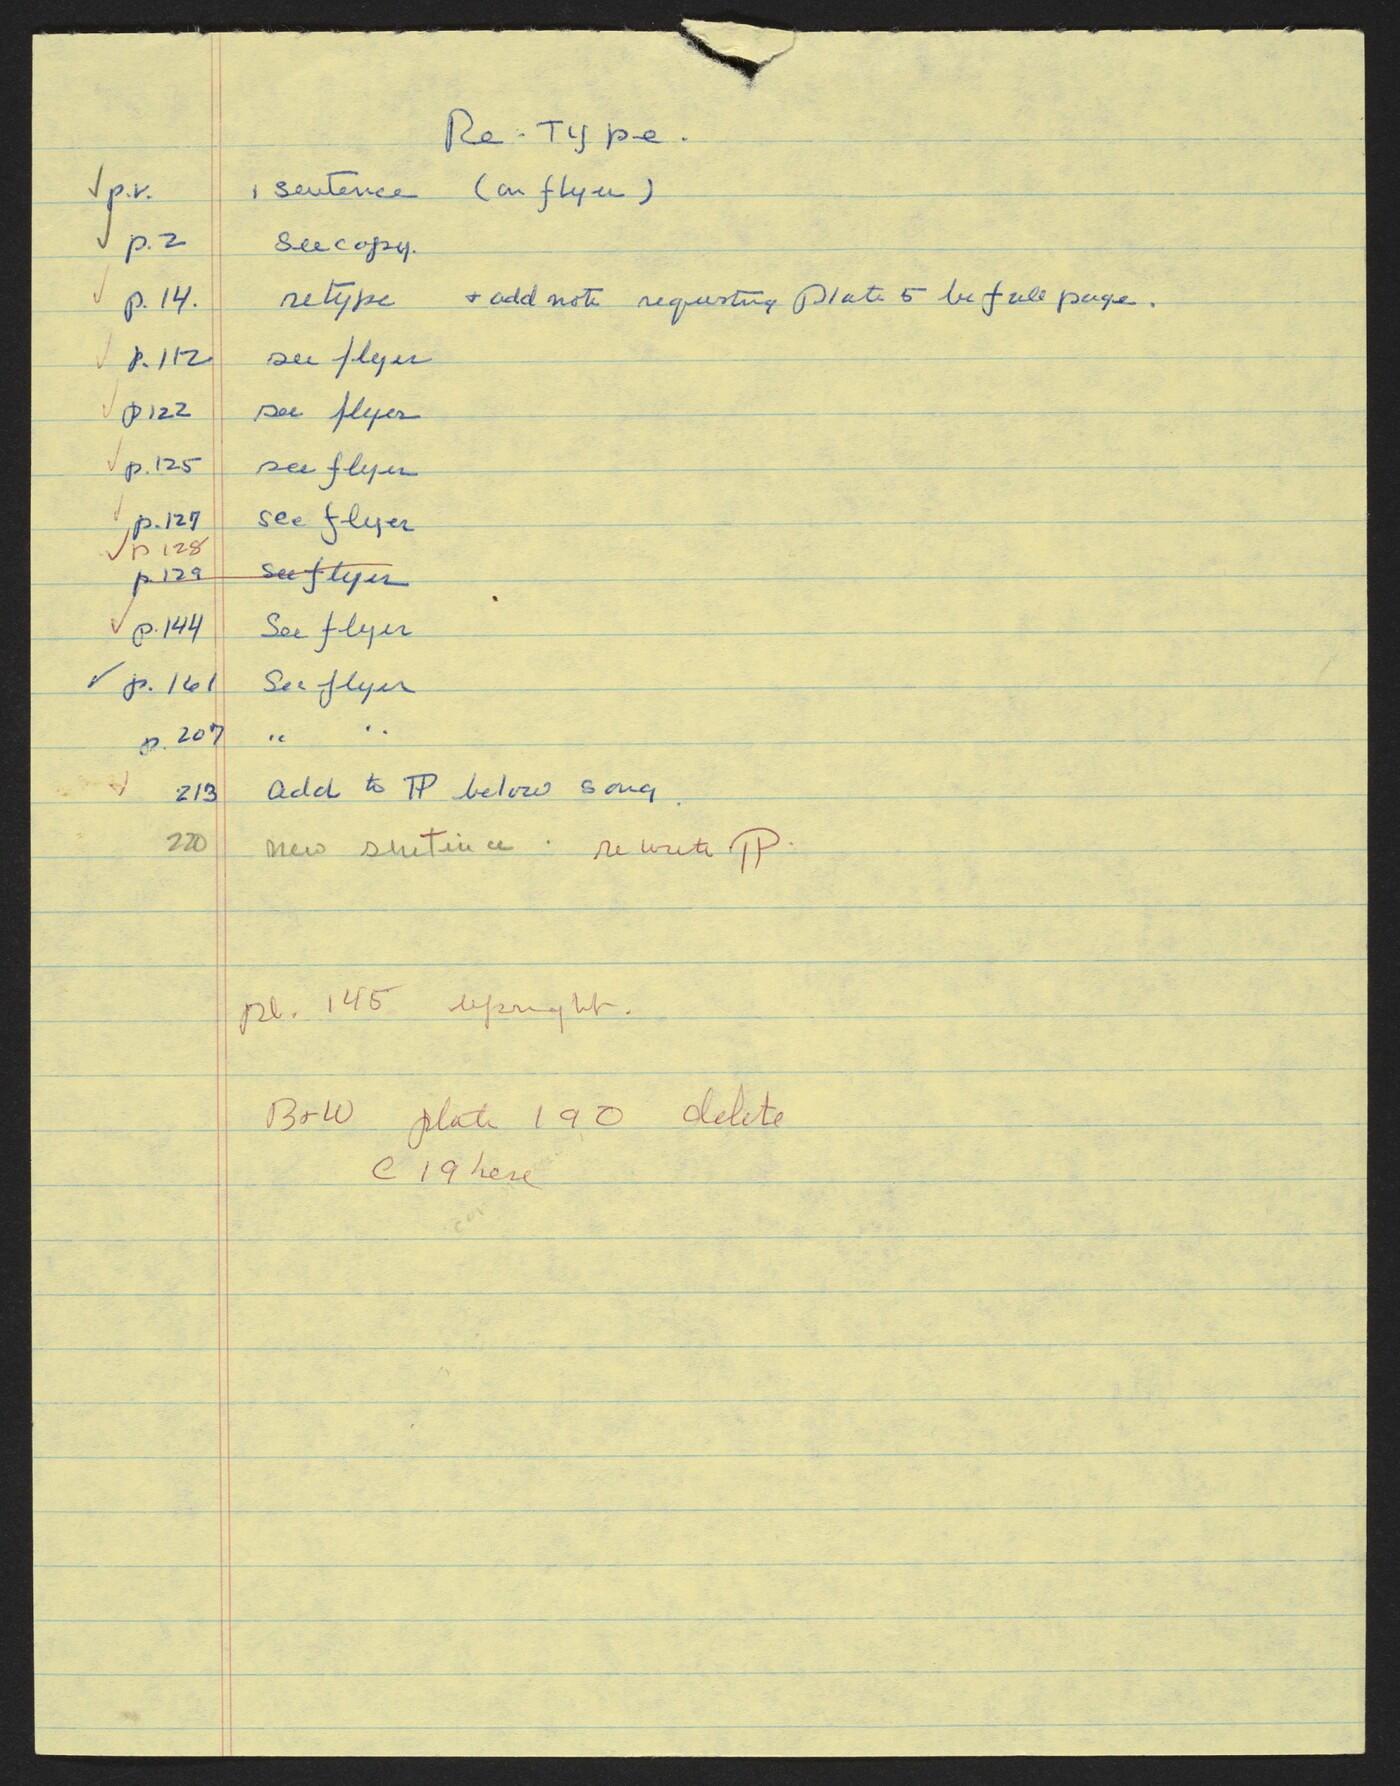 Re-Type.
✓ p.v. 1 sentence (on flyer)
✓ p.2 see copy.
✓ p.14. retype + add note requesting Plate 5 be full page.
✓ p.112 see flyer
✓ p122 see flyer
✓ p.125 see flyer
✓ p.127 see flyer
✓ p 128
p129 see flyer
✓ p.144 See flyer
✓ p.161 See flyer
p.207 " "
✓ 213 add to ¶ below song.
220 new sentence. rewrite ¶.
pl. 145 upright.
B+W plate 190 delete
C 19 here